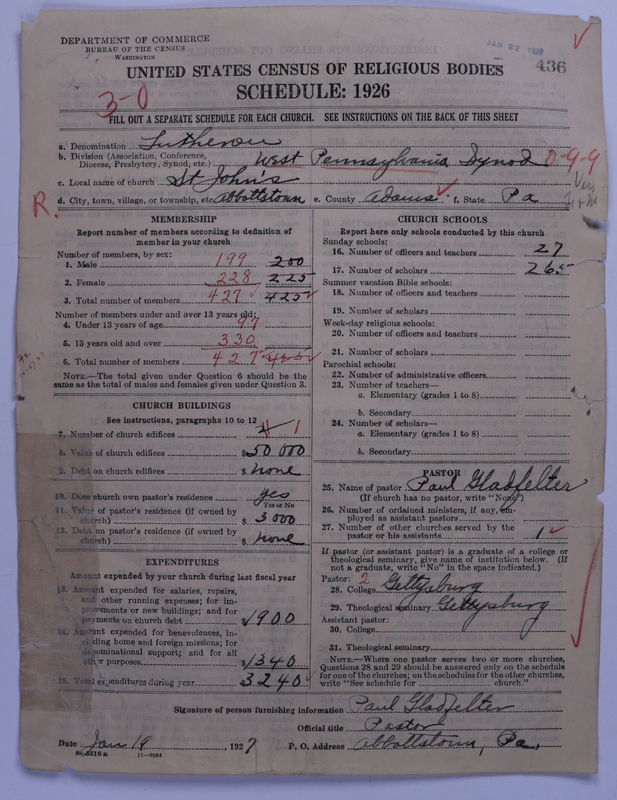 DEPARTMENT OF COMMERCE
BUREAU OF THE CENSUS
WASHINGTON
JAN 22 1927
436
UNITED STATES CENSUS OF RELIGIOUS BODIES
SCHEDULE: 1926
3-0
FILL OUT A SEPARATE SCHEDULE FOR EACH CHURCH. SEE INSTRUCTIONS ON THE BACK OF THIS SHEET
a. Denomination Lutheran
b. Division (Association, Conference, Diocese, Presbytery, Synod, etc.) West Pennsylvania Synod 0-9-9
c. Local name of church St John's
R d. City, town, village, or township, etc. Abbottstown e. County Adams f. State Pa
MEMBERSHIP
Report number of members according to definition of
member in your church
Number of members, by sex:
1. Male 199 200
2. Female 228 225
3. Total number of members 427 425
Number of members under and over 13 years old:
4. Under 13 years of age 97
5. 13 years old and over 330
6. Total number of members 427 425
NOTE.—The total given under Question 6 should be
same as the total of males and females given under Question 3.
CHURCH BUILDINGS
See instructions, paragraphs 10 to 12
7. Number of church edifices 1
8. Value of church edifices $50 000
9. Debt on church edifices $ none
10. Does church own pastor's residence yes
Yes or No
11. Value of pastor's residence (if owned by
church) $ 3000
12. Debt on pastor's residence (if owned by
church) $ none
EXPENDITURES
Amount expended by your church during last fiscal year
13. Amount expended for salaries, repairs,
and other running expenses; for im-
provements or new buildings; and for
payments on church debt $1900
14. Amount expended for benevolences, in-
cluding home and foreign missions; for
denominational support; and for all
other purposes $1340
15. Total expenditures during year 3240
CHURCH SCHOOLS
Report here only schools conducted by this church
Sunday schools:
16. Number of officers and teachers 27
17. Number of scholars 265
Summer vacation Bible schools:
18. Number of officers and teachers
19. Number of scholars
Week-day religious schools:
20. Number of officers and teachers
21. Number of scholars
Parochial schools:
22. Number of administrative officers
23. Number of teachers—
a. Elementary (grades 1 to 8)
b. Secondary
24. Number of scholars—
a. Elementary (grades 1 to 8)
b. Secondary
PASTOR
25. Name of pastor Paul Gladfelter
(If church has no pastor, write "None")
26. Number of ordained ministers, if any, em-
ployed as assistant pastors
27. Number of other churches served by the
pastor or his assistants 1
If pastor (or assistant pastor) is a graduate of a college or
theological seminary, give name of institution below. (If
not a graduate, write "No" in the space indicated.)
Pastor: 2
28. College Gettysburg
29. Theological seminary Gettysburg
Assistant pastor:
30. College
31. Theological seminary
NOTE.—Where one pastor serves two or more churches,
Questions 28 and 29 should be answered only on the schedule
for one of the churches; on the schedules for the other churches,
write "See schedule for church."
Signature of person furnishing information Paul Gladfelter
Official title Pastor
Date Jan 19 1927 P. O. Address Abbottstown, Pa.
8-5518 a 11-9084